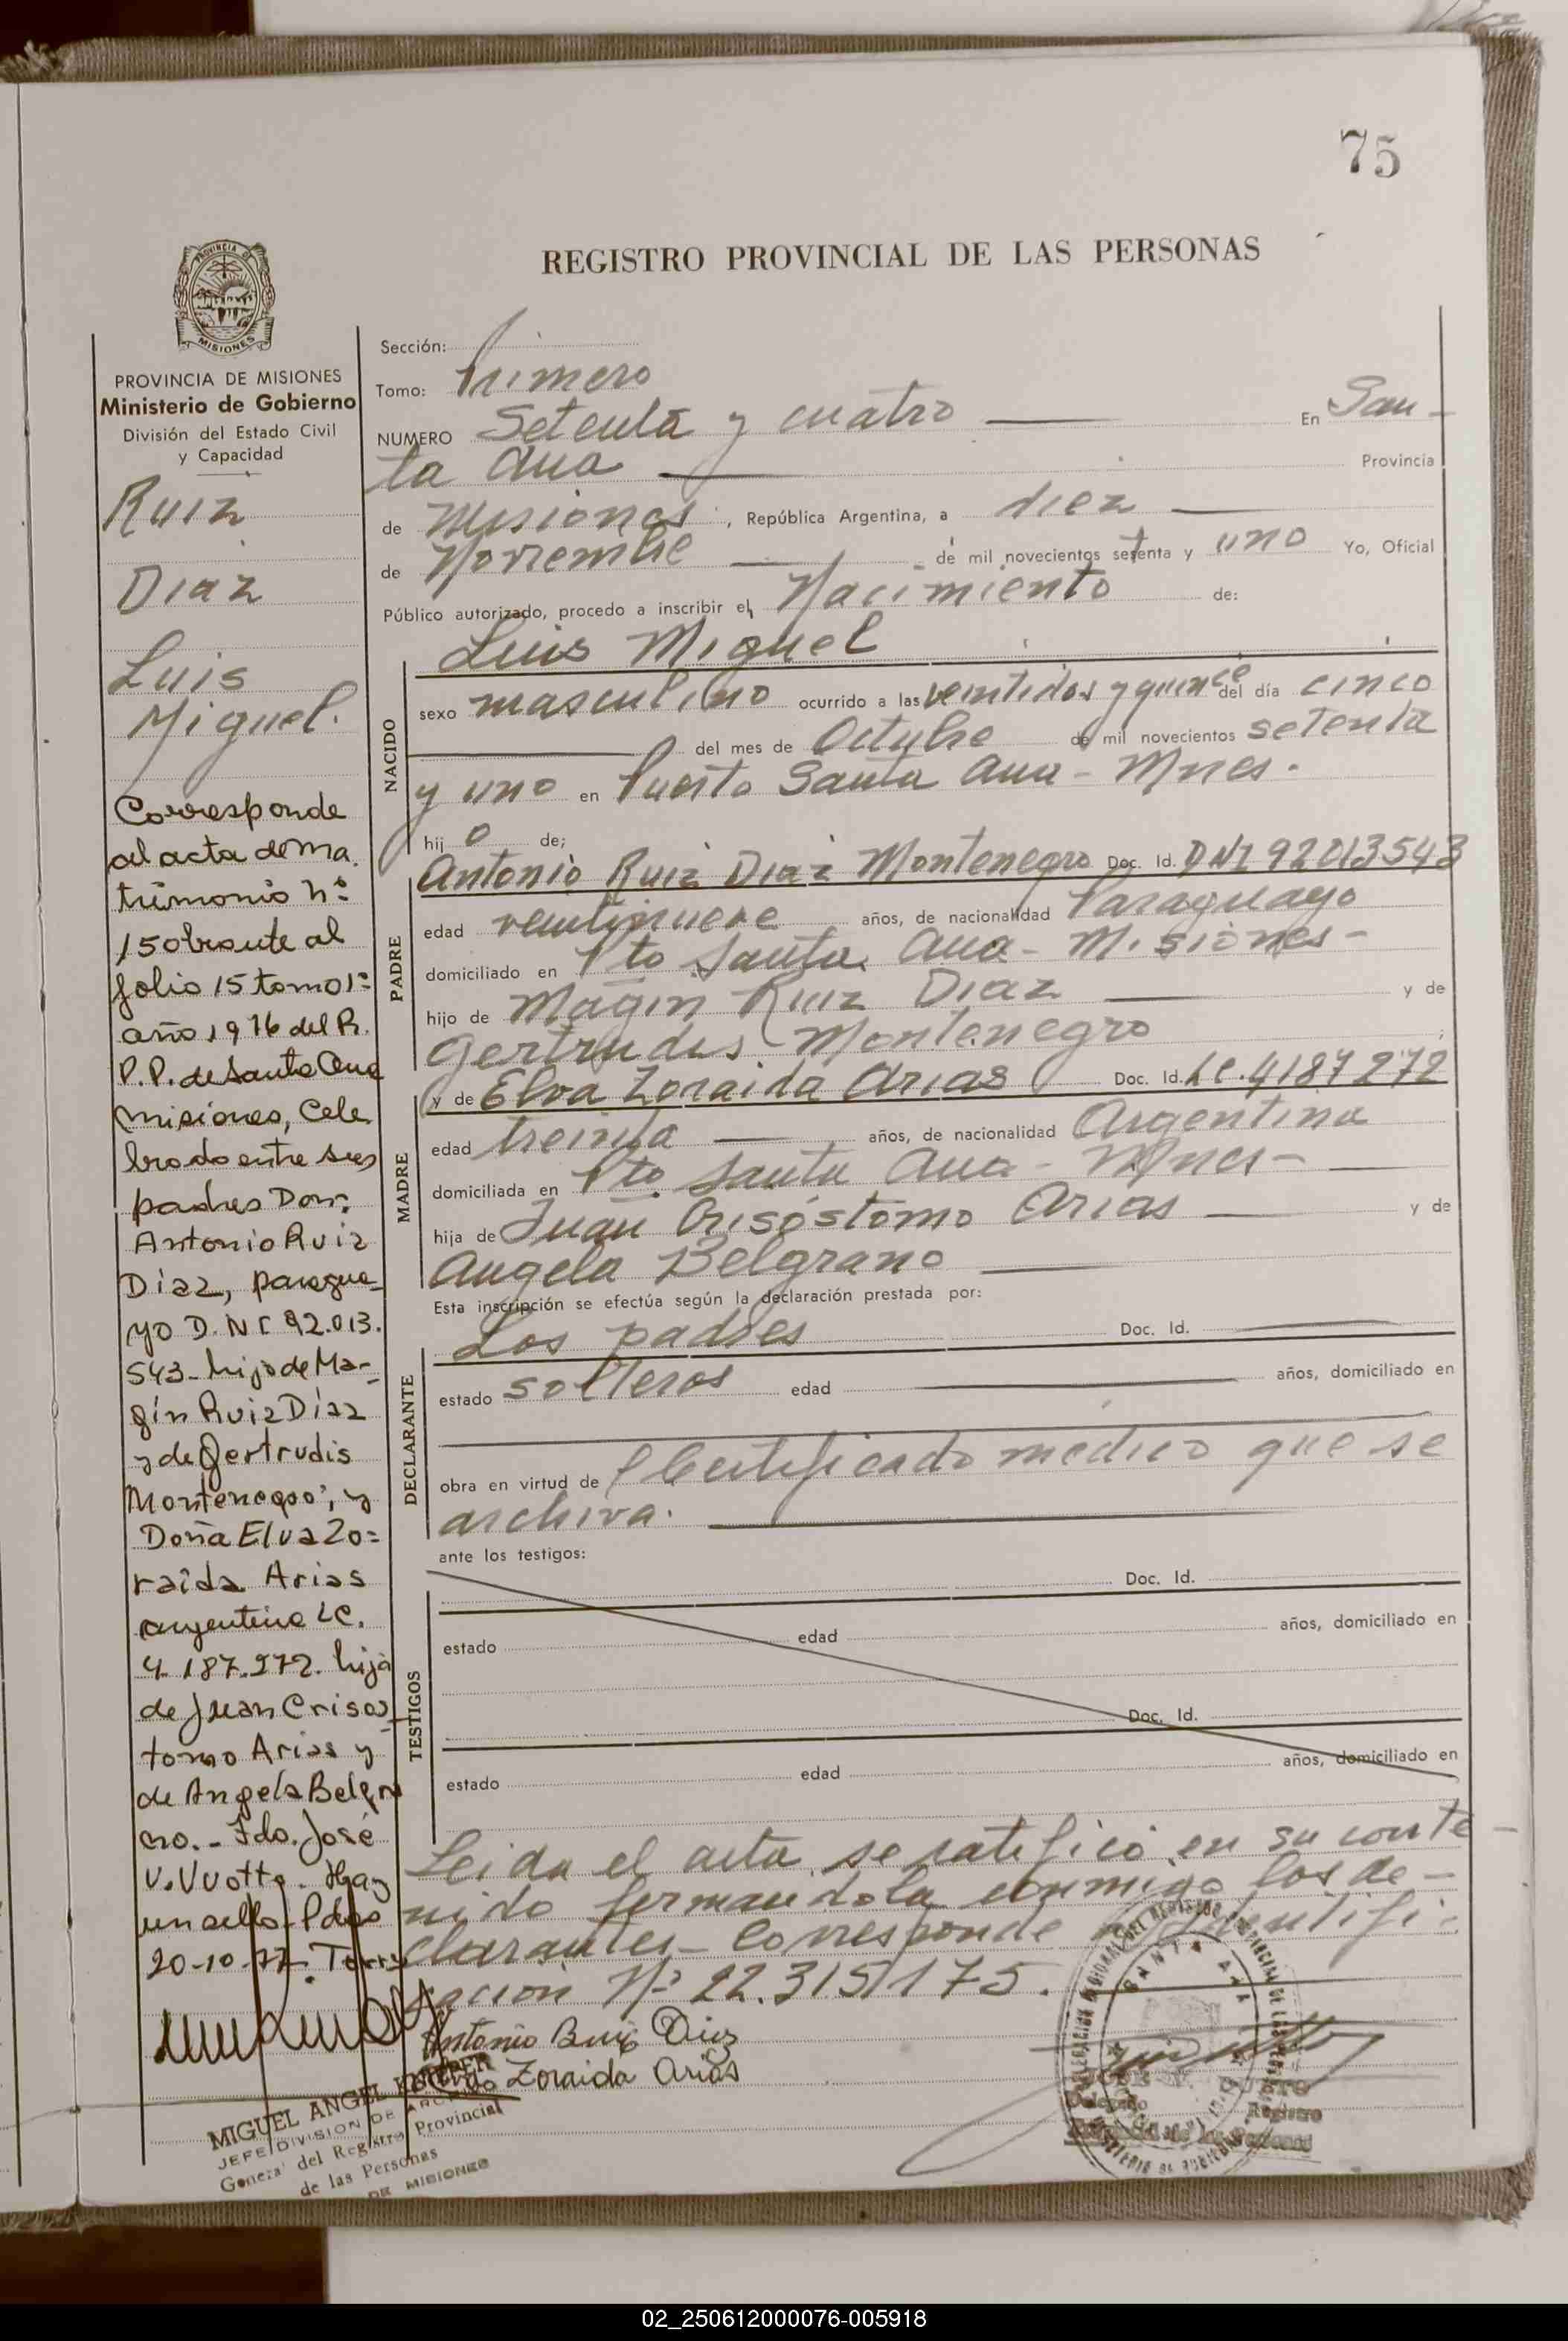 75
REGISTRO PROVINCIAL DE LAS PERSONAS
PROVINCIA DE
MISIONES
PROVINCIA DE MISIONES
Ministerio de Gobierno
División del Estado Civil
y Capacidad
Ruiz
Diaz
Luis
Miguel.
Corresponde
al acta de ma
trimonio nº
15 obrante al
folio 15 tomo 1º
año 1976 del R.
P.P. de Santa Ana
Misiones, Cele
brado entre sus
padres Don:
Antonio Ruiz
Díaz, paragua
yo D.N.I 92.013.
543- hijo de Ma-
gín Ruiz Díaz
y de Gertrudis
Montenegro; y
Doña Elva Zo=
raida Arias
argentina LC.
4.187.272. hija
de Juan Crisos
tomo Arias y
de Angela Belgra
no.- Fdo. José
V. Vuotto. Hay
un sello. Pdas
20-10-77.
Sección:
Tomo: Primero
NUMERO Setenta y cuatro En San-
ta Ana Provincia
de Misiones, República Argentina, a diez
de Noviembre de mil novecientos setenta y uno Yo, Oficial
Público autorizado, procedo a inscribir el Nacimiento de:
Luis Miguel
NACIDO
sexo masculino ocurrido a las veintidos y quince del día cinco
del mes de Octubre de mil novecientos setenta
y uno en Puerto Santa Ana - Mnes.
hij o de;
Antonio Ruiz Diaz Montenegro Doc. Id. DNI 92013543
PADRE
edad veintinueve años, de nacionalidad Paraguayo
domiciliado en Pto Santa Ana - Misiones-
hijo de Magin Ruiz Diaz y de
Gertrudis Montenegro
y de Elva Zoraida Arias Doc. Id. LC. 4187272
MADRE
edad treinta años, de nacionalidad Argentina
domiciliada en Pto. Santa Ana - Mnes-
hija de Juan Crisóstomo Arias y de
Angela Belgrano
Esta inscripción se efectúa según la declaración prestada por:
Los padres Doc. Id.
DECLARANTE
estado solteros edad años, domiciliado en
obra en virtud de Certificado medico que se
archiva.
ante los testigos:
Doc. Id.
TESTIGOS
estado edad años, domiciliado en
Doc. Id.
estado edad años, domiciliado en
Leida el acta, se ratificó en su conte-
nido firmandola conmigo los de-
clarantes- Corresponde identifi-
cación Nº 22.315175.
Antonio Ruiz Diaz
Zoraida Arias
MIGUEL ANGEL
JEFE DIVISION DE
General del Registro Provincial
de las Personas
DE MISIONES
SANTA ANA
Delegado Registro
Personas
02_250612000076-005918